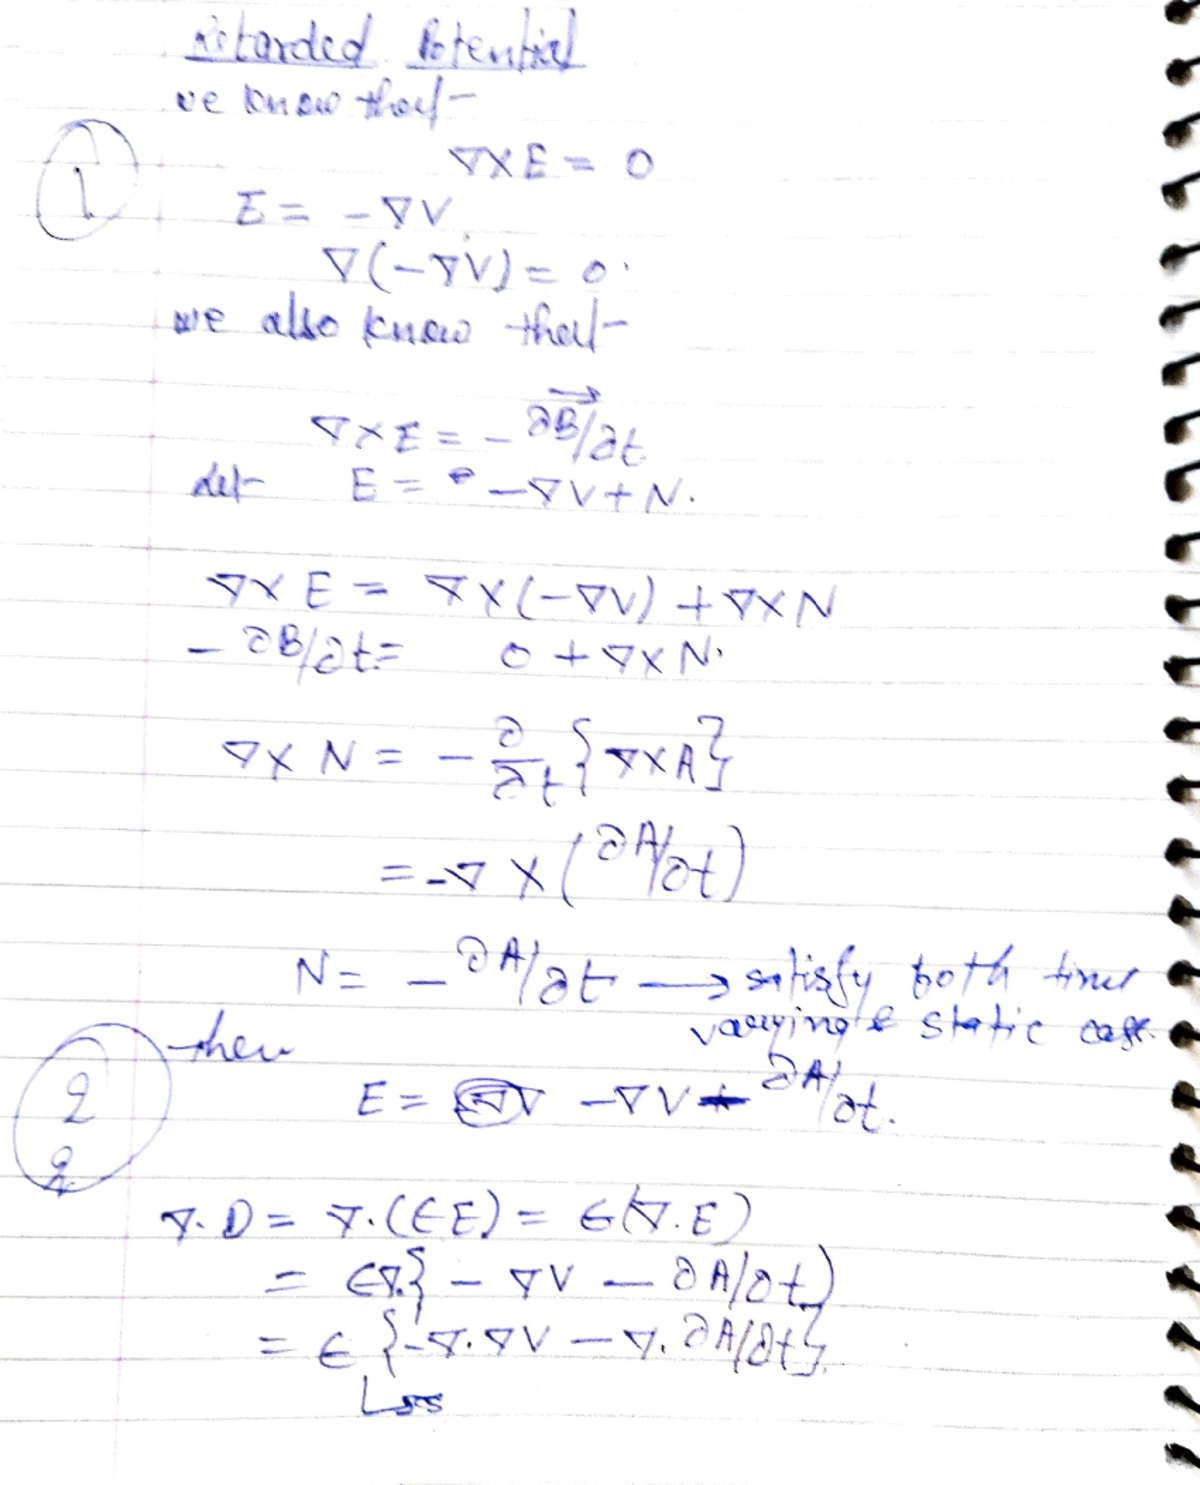 Retarded Potential
we know that
∇×E = 0
1
E = -∇V
∇(-∇V) = 0.
we also know that
∇×E = -∂B/∂t
let E = -∇V+N.
∇×E = ∇×(-∇V) + ∇×N
-∂B/∂t = 0 + ∇×N.
∇×N = -∂/∂t {∇×A}
= -∇×(∂A/∂t)
N = -∂A/∂t → satisfy both time
varying & static case.
then
2
E = -∇V - ∂A/∂t.
∇.D = ∇.(∈E) = ∈(∇.E)
= ∈∇.{-∇V - ∂A/∂t)
= ∈{-∇.∇V - ∇.∂A/∂t}.